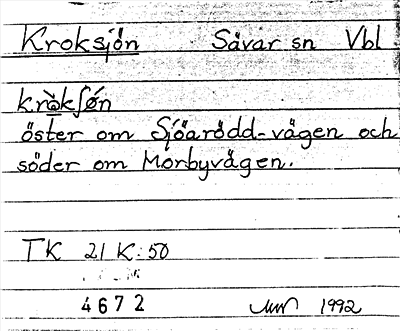 Kroksjön Sävar sn Vbl
öster om Sjöarödd-vägen och
söder om Morbyvägen.
TK 21 K:50
4672 1992